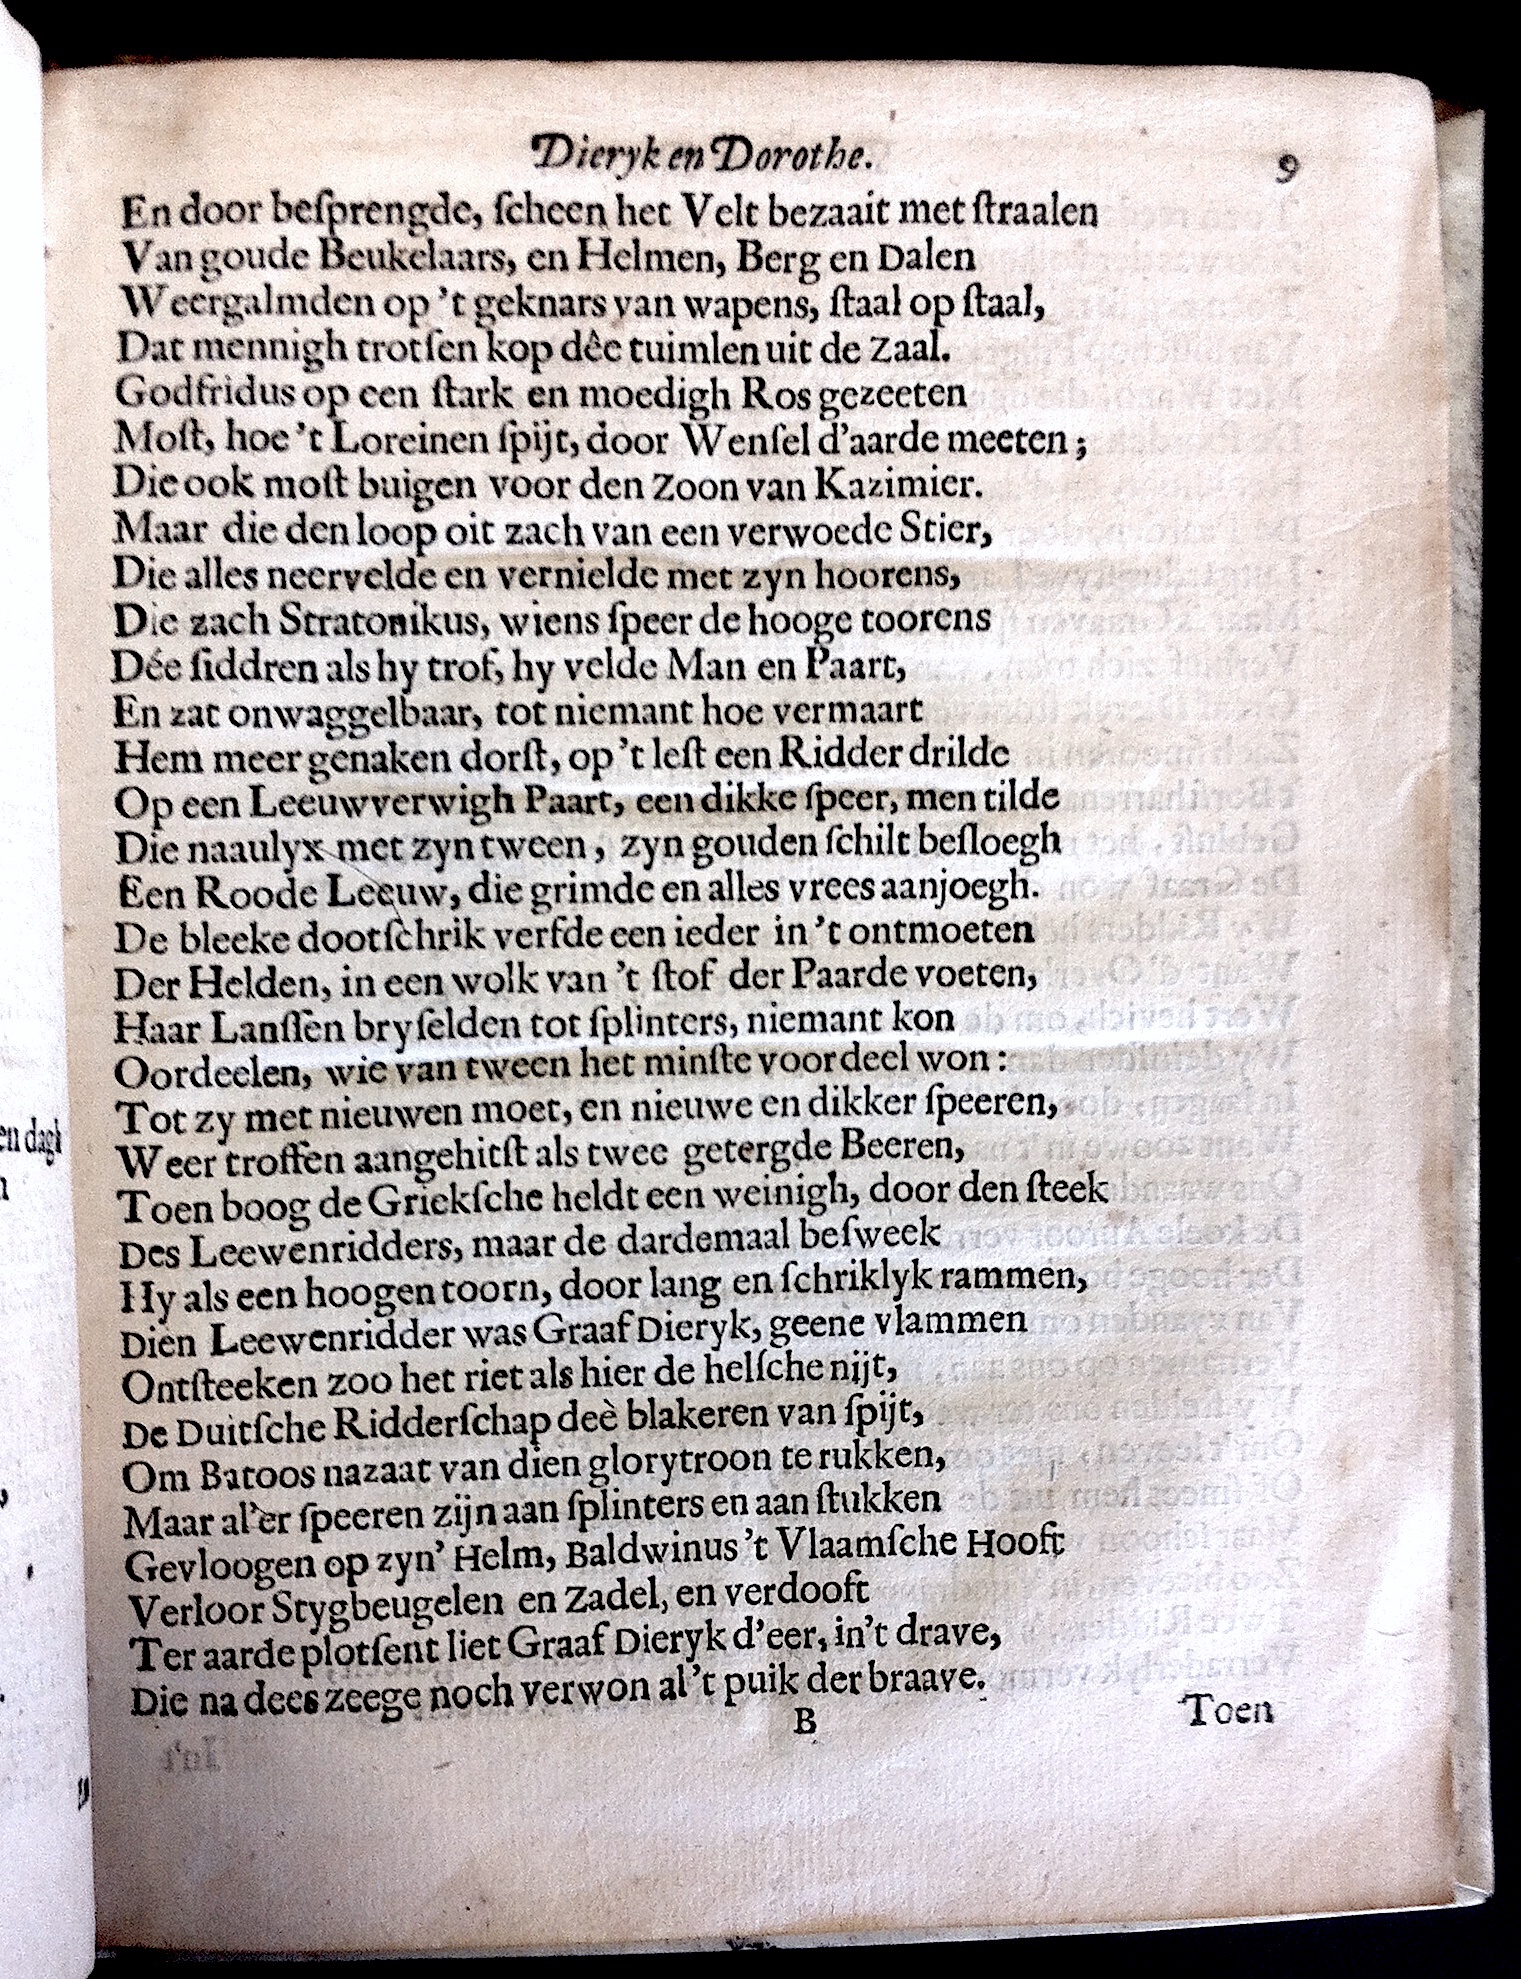 Dieryk en Dorothe.
9
En door beſprengde, ſcheen het Velt bezaait met ſtraalen
Van goude Beukelaars, en Helmen, Berg en Dalen
Weergalmden op 't geknars van wapens, ſtaal op ſtaal,
Dat mennigh trotſen kop dêe tuimlen uit de Zaal.
Godfridus op een ſtark en moedigh Ros gezeeten
Moſt, hoe 't Loreinen ſpijt, door Wenſel d'aarde meeten;
Die ook moſt buigen voor den Zoon van Kazimier.
Maar die den loop oit zach van een verwoede Stier,
Die alles neervelde en vernielde met zyn hoorens,
Die zach Stratonikus, wiens ſpeer de hooge toorens
Dée ſiddren als hy trof, hy velde Man en Paart,
En zat onwaggelbaar, tot niemant hoe vermaart
Hem meer genaken dorſt, op 't leſt een Ridder drilde
Op een Leeuwverwigh Paart, een dikke ſpeer, men tilde
Die naaulyx met zyn tween, zyn gouden ſchilt beſloegh
Een Roode Leeuw, die grimde en alles vrees aanjoegh.
De bleeke dootſchrik verfde een ieder in 't ontmoeten
Der Helden, in een wolk van 't ſtof der Paarde voeten,
Haar Lanſſen bryſelden tot ſplinters, niemant kon
Oordeelen, wie van tween het minſte voordeel won:
Tot zy met nieuwen moet, en nieuwe en dikker ſpeeren,
Weer troffen aangehitſt als twee getergde Beeren,
Toen boog de Griekſche heldt een weinigh, door den ſteek
Des Leewenridders, maar de dardemaal beſweek
Hy als een hoogen toorn, door lang en ſchriklyk rammen,
Dien Leewenridder was Graaf Dieryk, geene vlammen
Ontſteeken zoo het riet als hier de helſche nijt,
De Duitſche Ridderſchap deè blakeren van ſpijt,
Om Batoos nazaat van dien glorytroon te rukken,
Maar al'er ſpeeren zijn aan ſplinters en aan ſtukken
Gevloogen op zyn' Helm, Baldwinus 't Vlaamſche Hooft
Verloor Stygbeugelen en Zadel, en verdooft
Ter aarde plotſent liet Graaf Dieryk d'eer, in't drave,
Die na dees zeege noch verwon al 't puik der braave.
B
Toen
en dagh